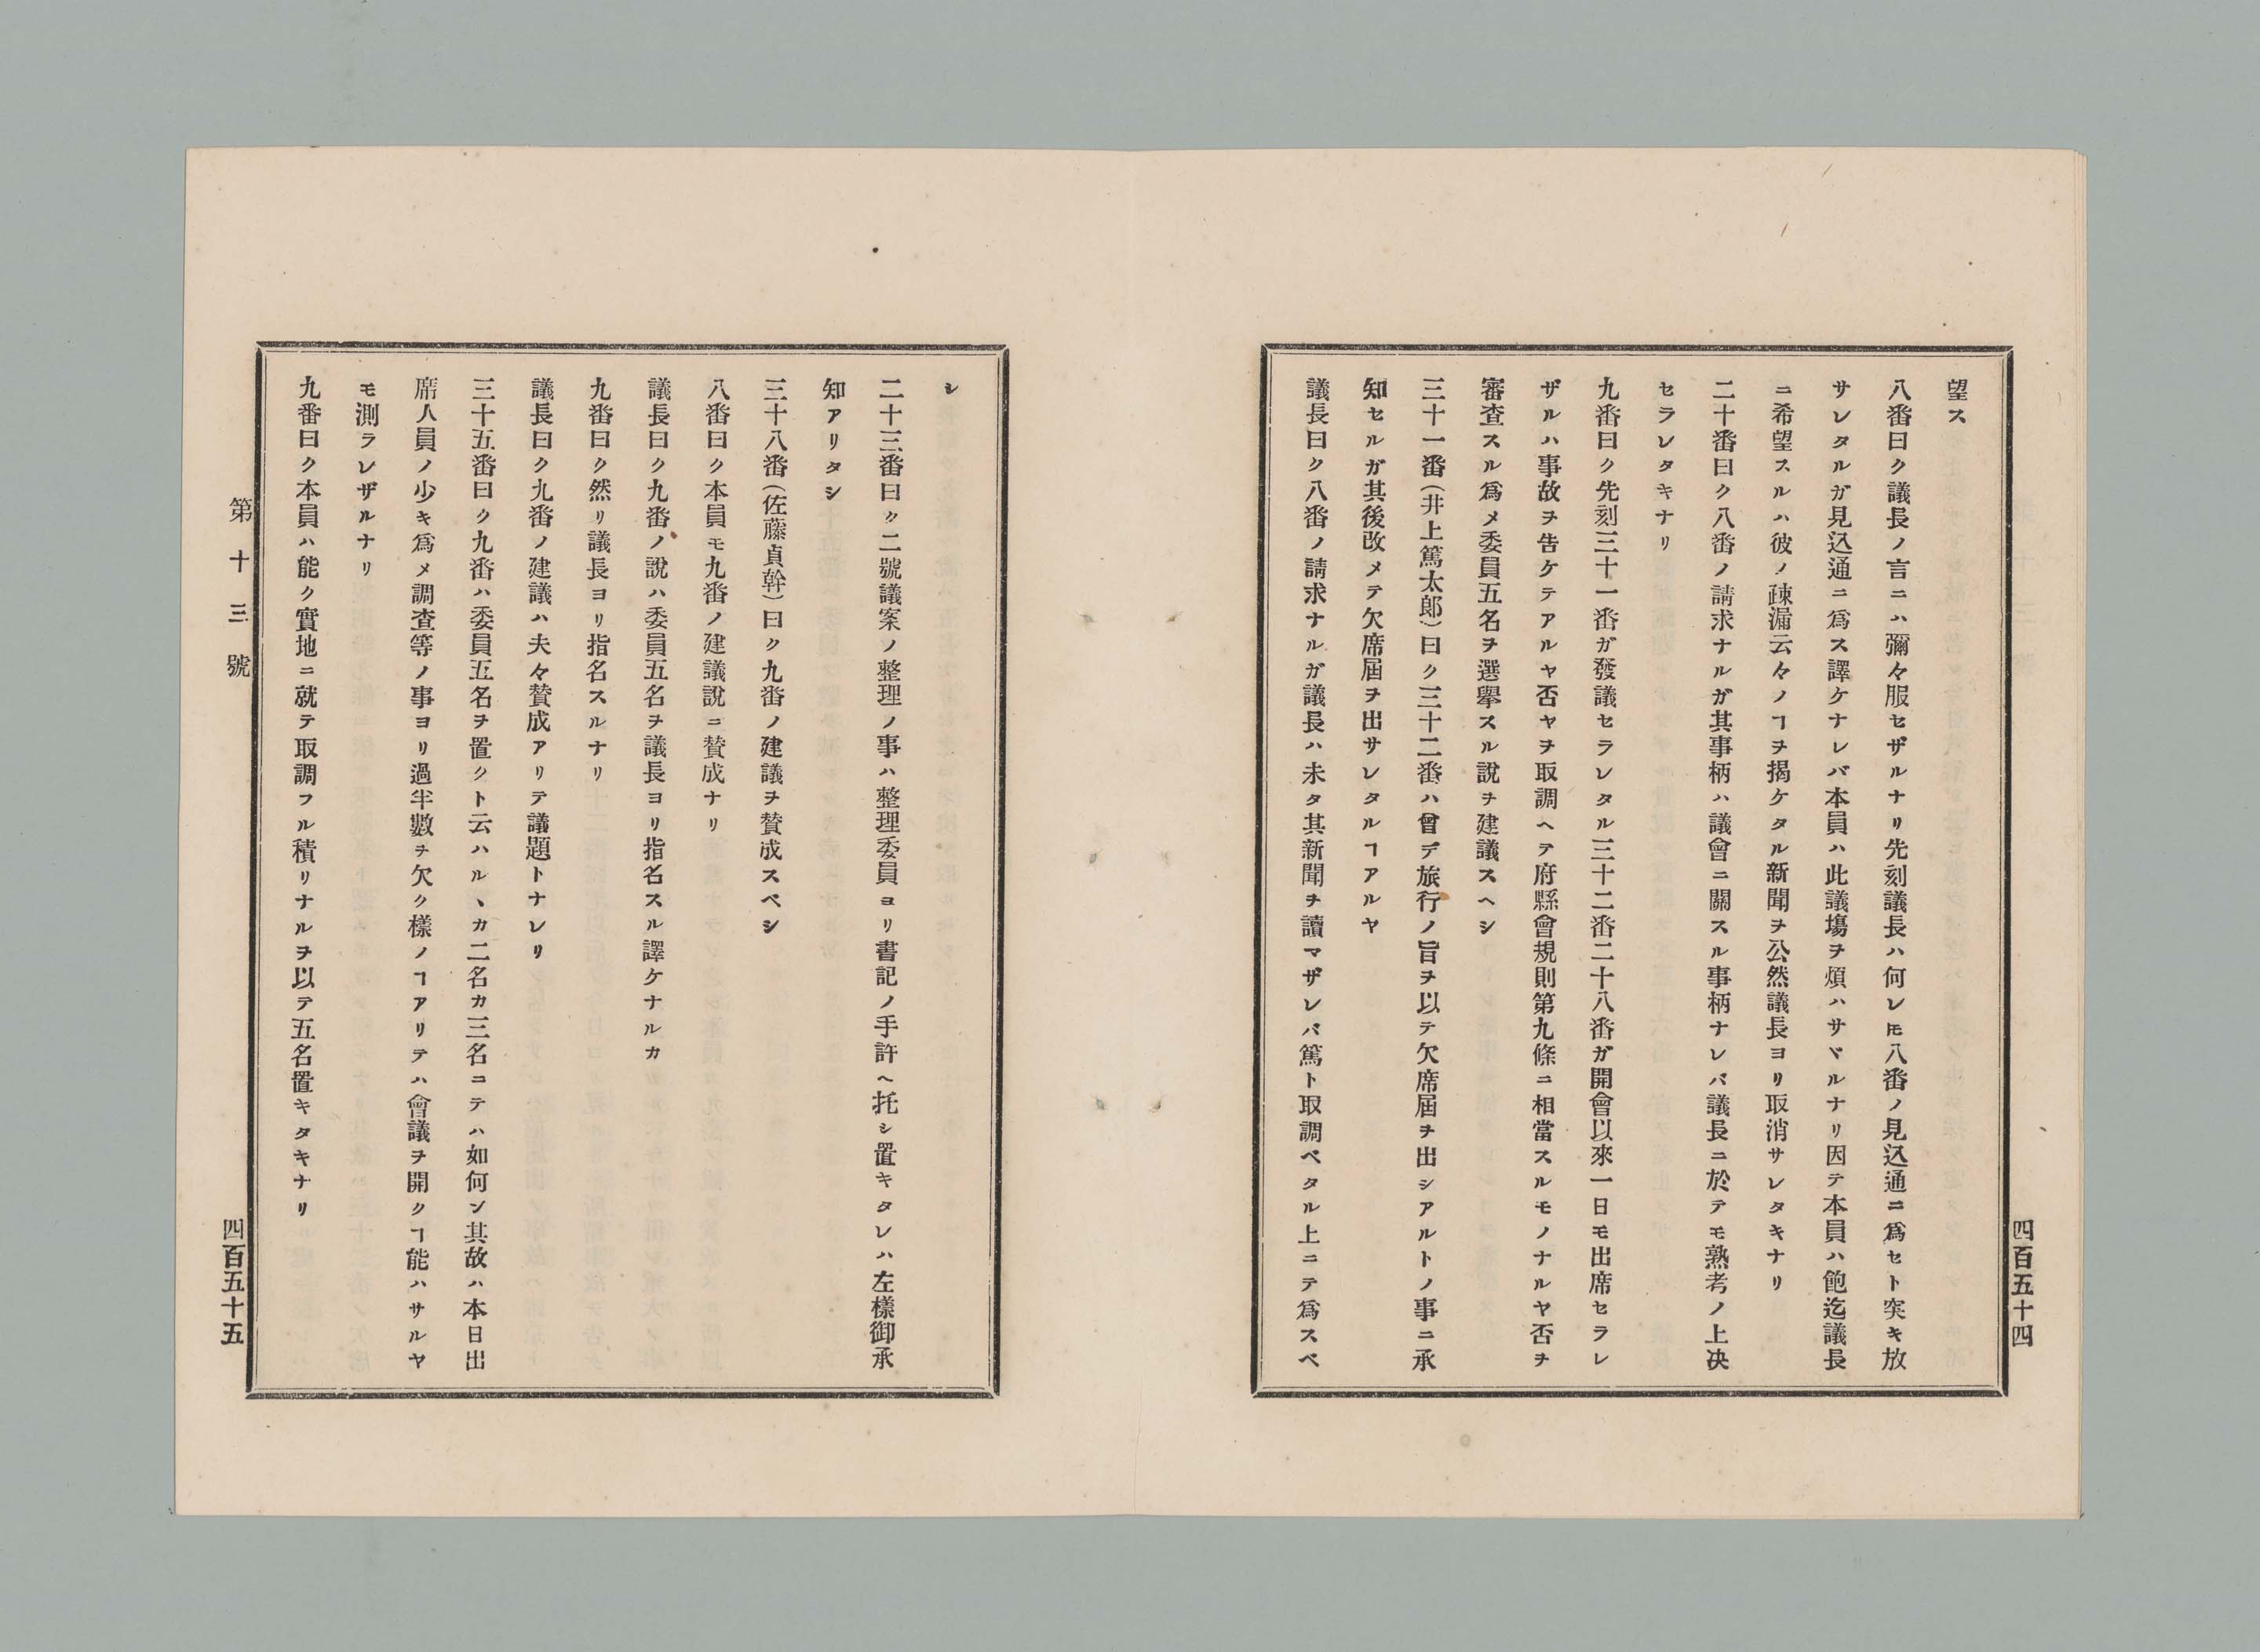 四百五十四
望ス
八番曰ク議長ノ言ニハ彌々服セザルナリ先刻議長ハ何レ𪜈八番ノ見込通ニ爲セト突キ放
サレタルガ見込通ニ爲ス譯ケナレバ本員ハ此議塲ヲ煩ハサヾルナリ因テ本員ハ飽迄議長
ニ希望スルハ彼ノ疎漏云々ノヿヲ揭ケタル新聞ヲ公然議長ヨリ取消サレタキナリ
二十番曰ク八番ノ請求ナルガ其事柄ハ議會ニ關スル事柄ナレバ議長ニ於テモ熟考ノ上决
セラレタキナリ
九番曰ク先刻三十一番ガ發議セラレタル三十二番二十八番ガ開會以來一日モ出席セラレ
ザルハ事故ヲ吿ケテアルヤ否ヤヲ取調ヘテ府縣會規則第九條ニ相當スルモノナルヤ否ヲ
審査スル爲メ委員五名ヲ選擧スル說ヲ建議スヘシ
三十一番（井上篤太郞）曰ク三十二番ハ曾テ旅行ノ旨ヲ以テ欠席屆ヲ出シアルトノ事ニ承
知セルガ其後改メテ欠席屆ヲ出サレタルヿアルヤ
議長曰ク八番ノ請求ナルガ議長ハ未タ其新聞ヲ讀マザレバ篤ト取調ベタル上ニテ爲スベ
シ
二十三番曰ク二號議案ノ整理ノ事ハ整理委員ヨリ書記ノ手許ヘ托シ置キタレハ左樣御承
知アリタシ
三十八番（佐藤貞幹）曰ク九番ノ建議ヲ賛成スベシ
八番曰ク本員モ九番ノ建議說ニ賛成ナリ
議長曰ク九番ノ說ハ委員五名ヲ議長ヨリ指名スル譯ケナルカ
九番曰ク然リ議長ヨリ指名スルナリ
議長曰ク九番ノ建議ハ夫々賛成アリテ議題トナレリ
三十五番曰ク九番ハ委員五名ヲ置クト云ハルヽカ二名カ三名ニテハ如何ン其故ハ本日出
席人員ノ少キ爲メ調查等ノ事ヨリ過半數ヲ欠ク樣ノヿアリテハ會議ヲ開クヿ能ハサルヤ
モ測ラレザルナリ
九番曰ク本員ハ能ク實地ニ就テ取調フル積リナルヲ以テ五名置キタキナリ
第十三號
四百五十五